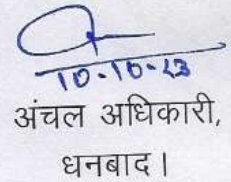 10-10-23
अंचल अधिकारी,
धनबाद।